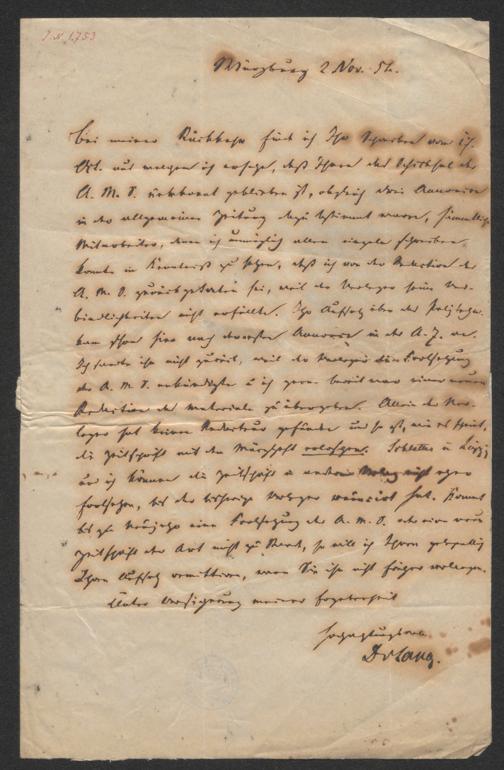 J.N. 1753
Würzburg 2 Nov. 54.
Bei meiner Rückkehr fand ich Ihr Schreiben vom 17.
Oct. aus welchem ich ersehe, daß Ihnen das Schicksal der
A. M. Z. unbekannt geblieben ist, obgleich drei Annoncen
in der allgemeinen Zeitung dazu bestimmt waren, sämmtliche
Mitarbeiter, denen ich unmöglich allen einzeln schreiben
konnte in Kenntniß zu setzen, daß ich von der Redaction der
A. M. Z. zurückgetreten sei, weil der Verleger seine Ver-
bindlichkeiten nicht erfüllte. Ihr Aufsatz über die
kam schon hier nach der ersten Annonce in der A. Z. an.
Ich sandte ihn nicht zurück, weil der Verleger die Fortsetzung
der A. M. Z. ankündigte u ich gern bereit war einer neuen
Redaction die Materiale zu übergeben. Allein der Ver-
leger hat keinen Redacteur gefunden und so ist, wie es scheint,
die Zeitschrift mit dem Märzheft erloschen. in Leipzig
und ich können die Zeitschrift in anderem Verlag nicht eher
fortsetzen, bis der bisherige Verleger hat. Kommt
bis zu Neujahr eine Fortsetzung der A. M. Z. oder eine neue
Zeitschrift der Art nicht zu Stand, so will ich Ihnen
Ihren Aufsatz remittiren, wenn Sie ihn nicht früher verlangen.
Unter Versicherung meiner Ergebenheit
hochachtungsvoll
Dr Lang.